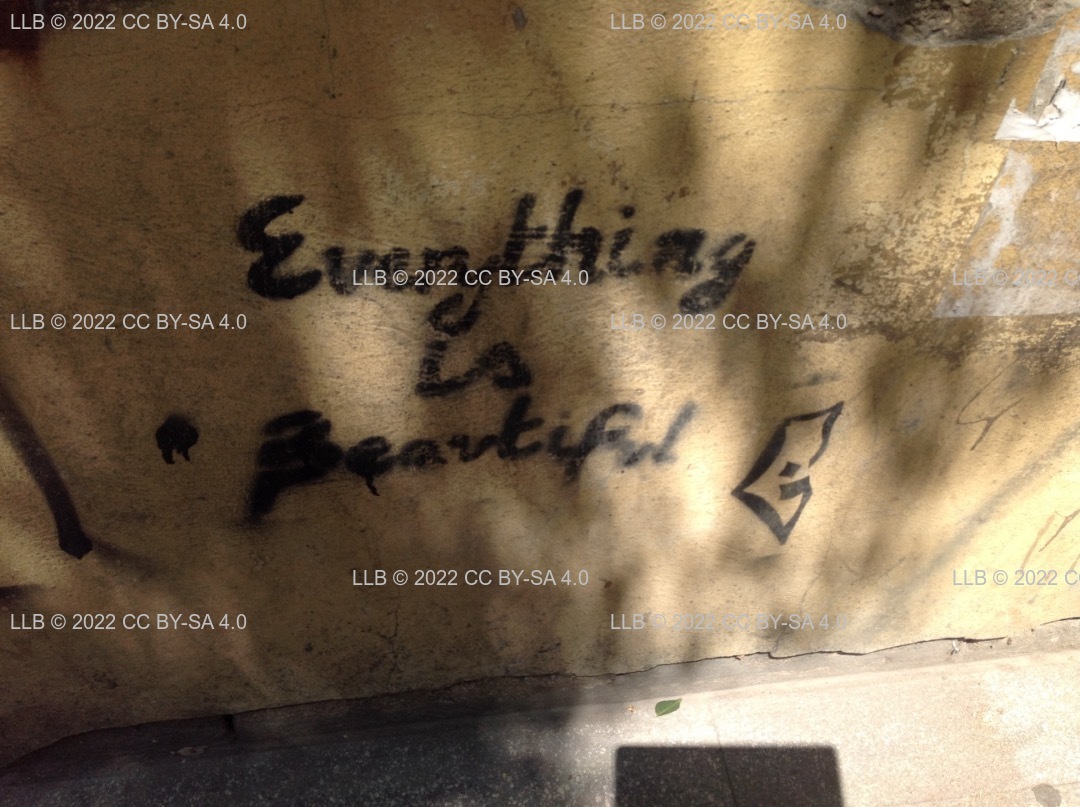 LLB © 2022 CC BY-SA 4.0 LLB © 2022 CC BY-SA 4.0
Everything
LLB © 2022 CC BY-SA 4.0 LLB © 2022 CC
LLB © 2022 CC BY-SA 4.0 LLB © 2022 CC BY-SA 4.0
is
Beautiful
LLB © 2022 CC BY-SA 4.0 LLB © 2022 CC
LLB © 2022 CC BY-SA 4.0 LLB © 2022 CC BY-SA 4.0